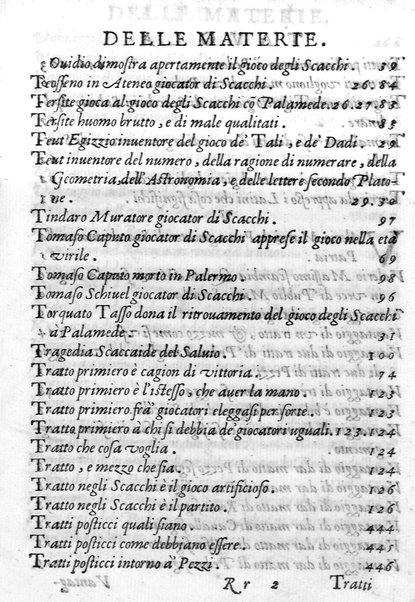 DELLE MATERIE.
Ouidio dimostra apertamente il gioco degli Scacchi. 39
Teosseno in Ateneo giocator di Scacchi. 26.84
Tersite gioca al gioco degli Scacchi cõ Palamede. 26.27.83
Tersite huomo brutto, e di male qualitati. 83
Teut Egizzio inuentore del gioco de' Tali, e de' Dadi. 29
Teut inuentore del numero, della ragione di numerare, della
Geometria, dell'Astronomia, e delle lettere secondo Plato-
ne. 29.30
Tindaro Muratore giocator di Scacchi. 97
Tomaso Caputo giocator di Scacchi apprese il gioco nella età
virile. 69
Tomaso Caputo morto in Palermo. 98
Tomaso Schiuel giocator di Scacchi. 96
Torquato Tasso dona il ritrouamento del gioco degli Scacchi
à Palamede. 31
Tragedia Scaccaide del Saluio. 100
Tratto primiero è cagion di vittoria. 74
Tratto primiero è l'istesso, che auer la mano. 123
Tratto primiero frà giocatori eleggasi per sorte. 123
Tratto primiero à chi si debbia de' giocatori uguali. 123.124
Tratto che cosa voglia. 124
Tratto, e mezzo che sia. 124
Tratto negli Scacchi è il gioco artificioso. 126
Tratto negli Scacchi è il partito. 126
Tratti posticci quali siano. 444
Tratti posticci come debbiano essere. 445
Tratti posticci intorno à Pezzi. 446
Rr 2 Tratti